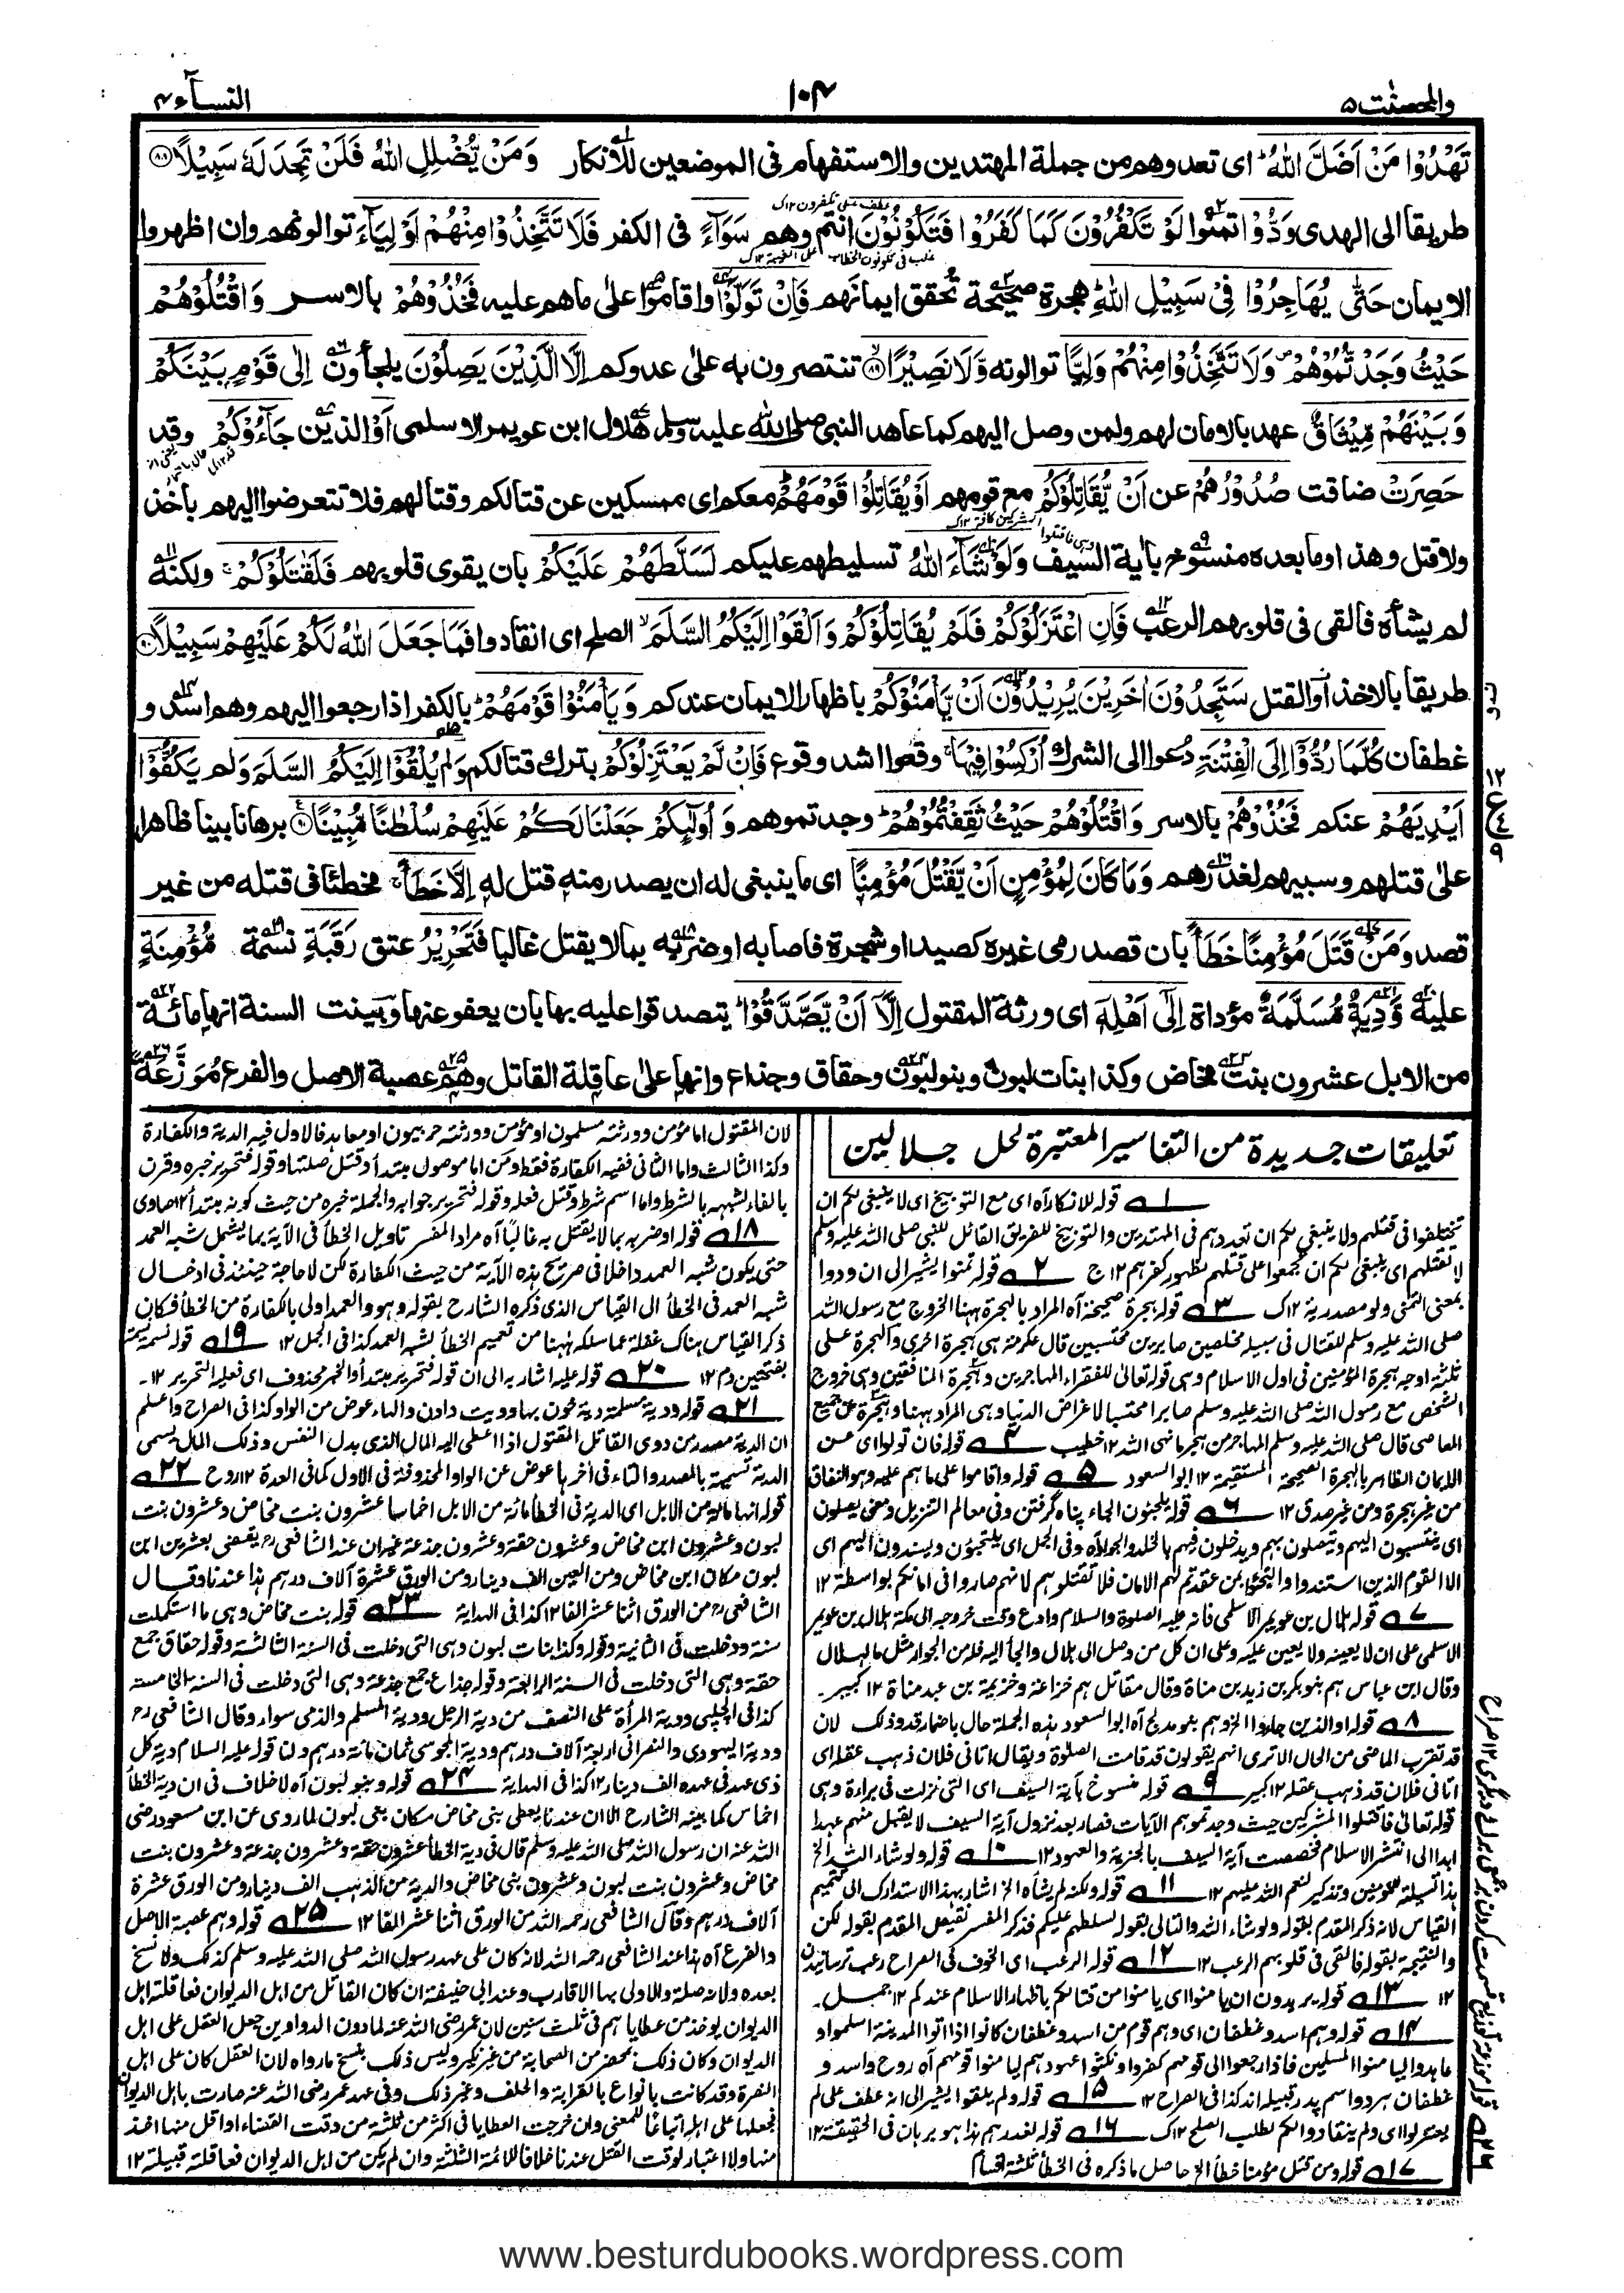 والمحصنت ۵
۱۰۴
النساء ۴
تَهْدُوْا مَنْ اَضَلَّ اللّٰهُ ؕ اى تعدوهم من جملة المهتدين والاستفهام فى الموضعين للانكار وَمَنْ يُّضْلِلِ اللّٰهُ فَلَنْ تَجِدَ لَهٗ سَبِيْلًا ﴿۸۸﴾
طريقا الى الهدى وَدُّوْا تمنوا لَوْ تَكْفُرُوْنَ كَمَا كَفَرُوْا فَتَكُوْنُوْنَ انتم وهم سَوَآءً فى الكفر فَلَا تَتَّخِذُوْا مِنْهُمْ اَوْلِيَآءَ توالونهم وان اظهروا
الايمان حَتّٰى يُهَاجِرُوْا فِىْ سَبِيْلِ اللّٰهِ ؕ هجرة صحيحة تحقق ايمانهم فَاِنْ تَوَلَّوْا واقاموا على ماهم عليه فَخُذُوْهُمْ بالاسر وَاقْتُلُوْهُمْ
حَيْثُ وَجَدْتُّمُوْهُمْ وَلَا تَتَّخِذُوْا مِنْهُمْ وَلِيًّا توالونه وَّلَا نَصِيْرًا ﴿۸۹﴾ تنتصرون به على عدوكم اِلَّا الَّذِيْنَ يَصِلُوْنَ يلجأون اِلٰى قَوْمٍۢ بَيْنَكُمْ
وَبَيْنَهُمْ مِّيْثَاقٌ عهد بالامان لهم ولمن وصل اليهم كما عاهد النبى صلى الله عليه وسلم هلال ابن عويمر الاسلمى اَوْ الذين جَآءُوْكُمْ وقد
حَصِرَتْ ضاقت صُدُوْرُهُمْ عن اَنْ يُّقَاتِلُوْكُمْ مع قومهم اَوْ يُقَاتِلُوْا قَوْمَهُمْ ؕ معكم اى ممسكين عن قتالكم وقتالهم فلا تتعرضوا اليهم باخذ
ولا قتل وهذا وما بعده منسوخ بأية السيف وَلَوْ شَآءَ اللّٰهُ تسليطهم عليكم لَسَلَّطَهُمْ عَلَيْكُمْ بان يقوى قلوبهم فَلَقٰتَلُوْكُمْ ۚ ولكنه
لم يشأه فالقى فى قلوبهم الرعب فَاِنِ اعْتَزَلُوْكُمْ فَلَمْ يُقَاتِلُوْكُمْ وَاَلْقَوْا اِلَيْكُمُ السَّلَمَ ۙ الصلح اى انقادوا فَمَا جَعَلَ اللّٰهُ لَكُمْ عَلَيْهِمْ سَبِيْلًا ﴿۹۰﴾
طريقا بالاخذ او القتل سَتَجِدُوْنَ اٰخَرِيْنَ يُرِيْدُوْنَ اَنْ يَّاْمَنُوْكُمْ باظهار الايمان عندكم وَيَاْمَنُوْا قَوْمَهُمْ ؕ بالكفر اذا رجعوا اليهم وهم اسد و
غطفان كُلَّمَا رُدُّوْۤا اِلَى الْفِتْنَةِ دعوا الى الشرك اُرْكِسُوْا فِيْهَا ۚ وقعوا اشد وقوع فَاِنْ لَّمْ يَعْتَزِلُوْكُمْ بترك قتالكم وَ لم يُلْقُوْۤا اِلَيْكُمُ السَّلَمَ وَ لم يَكُفُّوْۤا
اَيْدِيَهُمْ عنكم فَخُذُوْهُمْ بالاسر وَاقْتُلُوْهُمْ حَيْثُ ثَقِفْتُمُوْهُمْ ؕ وجدتموهم وَاُولٰٓئِكُمْ جَعَلْنَا لَكُمْ عَلَيْهِمْ سُلْطٰنًا مُّبِيْنًا ﴿۹۱﴾ برهانا بينا ظاهرا
على قتلهم وسبيهم لغدرهم وَمَا كَانَ لِمُؤْمِنٍ اَنْ يَّقْتُلَ مُؤْمِنًا اى ما ينبغى له ان يصدر منه قتل له اِلَّا خَطَـًٔا ۚ مخطئا فى قتله من غير
قصد وَمَنْ قَتَلَ مُؤْمِنًا خَطَـًٔا بان قصد رمى غيره كصيد او شجرة فاصابه او ضربه بما لا يقتل غالبا فَتَحْرِيْرُ عتق رَقَبَةٍ نسمة مُّؤْمِنَةٍ
عليه وَّدِيَةٌ مُّسَلَّمَةٌ مؤداة اِلٰٓى اَهْلِهٖۤ اى ورثة المقتول اِلَّاۤ اَنْ يَّصَّدَّقُوْا ؕ يتصدقوا عليه بها بان يعفو عنها وبينت السنة انها مائة
من الابل عشرون بنت مخاض وكذا بنات لبون وبنو لبون وحقاق وجذاع وانها على عاقلة القاتل وهم عصبة الاصل والفرع مُوَزَّعة
تعليقات جديدة من التفاسير المعتبرة لحل جلالين
۱ قوله للانكار آه اى مع التوبيخ اى لا ينبغى لكم ان
تختلفوا فى قتلهم ولا ينبغى لكم ان تعدوهم فى المهتدين والتوبيخ للفريق القائل للنبى صلى الله عليه وسلم
لا تقتلهم اى ينبغى لكم ان تجمعوا على قتلهم لظهور كفرهم ۱۲ج ۲ قوله تمنوا يشير الى ان ودوا
بمعنى التمنى ولو مصدرية ۱۲ك ۳ قوله هجرة صحيحة آه المراد بالهجرة ههنا الخروج مع رسول الله
صلى الله عليه وسلم للقتال فى سبيله مخلصين صابرين محتسبين قال عكرمة هى هجرة اخرى والهجرة على
ثلثة اوجه هجرة المؤمنين فى اول الاسلام وهى قوله تعالى للفقراء المهاجرين وهجرة المنافقين وهى خروج
الشخص مع رسول الله صلى الله عليه وسلم صابرا محتسبا لا غراض الدنيا وهى المراد ههنا وهجرة عن جميع
المعاصى قال صلى الله عليه وسلم المهاجر من هجر ما نهى الله ۱۲ خطيب ۴ قوله فان تولوا اى عن
الايمان الظاهر بالهجرة الصحيحة المستقيمة ۱۲ ابو السعود ۵ قوله واقاموا على ما هم عليه وهو النفاق
من غير هجرة ومن غير صدق ۱۲ ۶ قوله يلجئون الجاء پناه گرفتن وفى معالم التنزيل ومعنى يصلون
اى ينتسبون اليهم ويتصلون بهم ويدخلون فيهم بالحلف والجوار آه وفى الجمل اى يلتجؤن ويستندون اليهم اى
الا القوم الذين استندوا والتجئوا بمن عقدتم لهم الامان فلا تقتلوهم لانهم صاروا فى امانكم بواسطة ۱۲
۷ قوله هلال بن عويمر الاسلمى فانه عليه الصلوة والسلام وادع وقت خروجه الى مكة هلال بن عويمر
الاسلمى على ان لا يعينه ولا يعين عليه وعلى ان كل من وصل الى هلال والجأ اليه فله من الجوار مثل ما لهلال
وقال ابن عباس هم بنو بكر بن زيد بن مناة وقال مقاتل هم خزاعة وخزيمة بن عبد مناة ۱۲ كبير۔
۸ قوله او الذين جاءوا الخ وهم بنو مدلج آه ابو السعود هذه الجملة حال باضمار قد وذلك لان
قد تقرب الماضى من الحال الا ترى انهم يقولون قد قامت الصلوة ويقال اتانى فلان ذهب عقله اى
اتانى فلان قد ذهب عقله ۱۲ كبير ۹ قوله منسوخ بآية السيف اى التى نزلت فى براءة وهى
قوله تعالى فاقتلوا المشركين حيث وجدتموهم الآيات فصار بعد نزول آية السيف لا يقبل منهم عهدا
ابدا الى انتشر الاسلام فخصصت آية السيف بالجزية والعهود ۱۲ ۱۰ قوله ولو شاء الله الخ
هذا تسلية للمؤمنين وتذكير لنعم الله عليهم ۱۲ ۱۱ قوله ولكنه لم يشأه الخ اشار بهذا الاستدراك الى تتميم
القياس لانه ذكر المقدم بقوله ولو شاء الله والتالى بقوله لسلطهم عليكم فذكر المفسر نقيض المقدم بقوله لكن
والنتيجة بقوله فالقى فى قلوبهم الرعب ۱۲ ۱۲ قوله الرعب اى الخوف فى الصراح رعب ترسانيدن
۱۲ ۱۳ قوله يريدون ان يامنوا اى يامنوا من قتالكم باظهار الاسلام عندكم ۱۲ جمل۔
۱۴ قوله وهم اسد وغطفان اى وهم قوم من اسد وغطفان كانوا اذا اتوا المدينة اسلموا و
عاهدوا ليامنوا المسلمين فاذا رجعوا الى قومهم كفروا ونكثوا عهودهم ليامنوا قومهم آه روح واسد و
غطفان هر دو اسم پدر قبيله اند كذا فى الصراح ۱۲ ۱۵ قوله ولم يلقوا يشير الى انه عطف على لم
يعتزلوا اى ولم ينقادوا لكم لطلب الصلح ۱۲ك ۱۶ قوله لغدرهم هذا هو برهان فى الحقيقة ۱۲
۱۷ قوله ومن قتل مؤمنا خطأ الخ حاصل ما ذكره فى الخطأ ثلثة اقسام
لان المقتول اما مؤمن وورثته مسلمون او مؤمن وورثته حربيون او معاهد فالاول فيه الدية والكفارة
وكذا الثالث واما الثانى ففيه الكفارة فقط ومن اما موصول مبتدأ وقتل صلتها وقوله فتحرير خبره وقرن
بالفاء لشبهه بالشرط واما اسم شرط وقتل فعله وقوله فتحرير جوابه والجملة خبره من حيث كونه مبتدأ ۱۲ صاوى
۱۸ قوله او ضربه بما لا يقتل به غالبا آه مراد المفسر تاويل الخطأ فى الآية بما يشمل شبه العمد
حتى يكون شبه العمد داخلا فى صريح هذه الآية من حيث الكفارة لكن لا حاجة حينئذ فى ادخال
شبه العمد فى الخطأ الى القياس الذى ذكره الشارح بقوله وهو والعمد اولى بالكفارة من الخطأ فكان
ذكر القياس هناك غفلة عما سلكه ههنا من تعميم الخطأ لشبه العمد كذا فى الجمل ۱۲ ۱۹ قوله نسمة
بفتحتين دم ۱۲ ۲۰ قوله عليه اشار به الى ان قوله فتحرير مبتدأ والخبر محذوف اى فعليه التحرير ۱۲۔
۲۱ قوله ودية مسلمة دية خون بها وديت دادن والهاء عوض من الواو كذا فى الصراح واعلم
ان الدية مصدر من ودى القاتل المقتول اذا اعطى اليه المال الذى بدل النفس وذلك المال يسمى
الدية تسمية بالمصدر والتاء فى آخرها عوض عن الواو المحذوفة فى الاول كما فى العدة ۱۲ روح ۲۲
قوله انها مائة من الابل اى الدية فى الخطأ مائة من الابل اخماسا عشرون بنت مخاض وعشرون بنت
لبون وعشرون ابن مخاض وعشرون حقة وعشرون جذعة غير ان عند الشافعى رح يقضى بعشرين ابن
لبون مكان ابن مخاض ومن العين الف دينار ومن الورق عشرة آلاف درهم هذا عندنا وقال
الشافعى رح من الورق اثنا عشر الفا ۱۲ كذا فى الهداية ۲۳ قوله بنت مخاض وهى ما استكملت
سنة ودخلت فى الثانية وقوله وكذا بنات لبون وهى التى دخلت فى السنة الثالثة وقوله حقاق جمع
حقة وهى التى دخلت فى السنة الرابعة وقوله جذاع جمع جذعة وهى التى دخلت فى السنة الخامسة
كذا فى الچلپى ودية المرأة على النصف من دية الرجل ودية المسلم والذمى سواء وقال الشافعى رح
ودية اليهودى والنصرانى اربعة آلاف درهم ودية المجوسى ثمان مائة درهم ولنا قوله عليه السلام دية كل
ذى عهد فى عهده الف دينار ۱۲ كذا فى الهداية ۲۴ قوله وبنو لبون آه لا خلاف فى ان دية الخطأ
اخماس كما بينه الشارح الا ان عندنا يعطى بنى مخاض مكان بنى لبون لما روى عن ابن مسعود رضى
الله عنه ان رسول الله صلى الله عليه وسلم قال فى دية الخطأ عشرون حقة وعشرون جذعة وعشرون بنت
مخاض وعشرون بنت لبون وعشرون بنى مخاض والدية من الذهب الف دينار ومن الورق عشرة
آلاف درهم وقال الشافعى رحمه الله من الورق اثنا عشر الفا ۱۲ ۲۵ قوله وهم عصبة الاصل
والفرع آه هذا عند الشافعى رحمه الله لانه كان على عهد رسول الله صلى الله عليه وسلم كذلك ولا نسخ
بعده ولانه صلة والاولى بها الاقارب وعند ابى حنيفة ان كان القاتل من اهل الديوان فعاقلته اهل
الديوان يوخذ من عطاياهم فى ثلث سنين لان عمر رضى الله عنه لما دون الدواوين جعل العقل على اهل
الديوان وكان ذلك بمحضر من الصحابة من غير نكير وليس ذلك بنسخ ما رواه لان العقل كان على اهل
النصرة وقد كانت بانواع بالقرابة والحلف وغير ذلك وفى عهد عمر رضى الله عنه صارت باهل الديوان
فجعلها على اهله اتباعا للمعنى وان خرجت العطايا فى اكثر من ثلثة من وقت القضاء او اقل منها اخذ
منها ولا اعتبار لوقت القتل عندنا خلافا للائمة الثلثة وان لم يكن من اهل الديوان فعاقلته قبيلته ۱۲
www.besturdubooks.wordpress.com